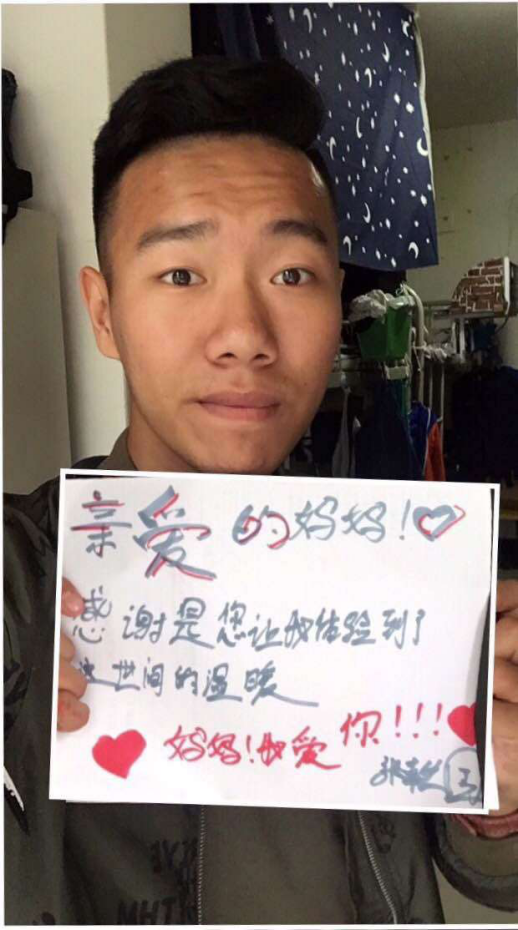 亲爱的妈妈!♡
感谢是您让我体验到了
这世间的温暖
妈妈!我爱你!!!